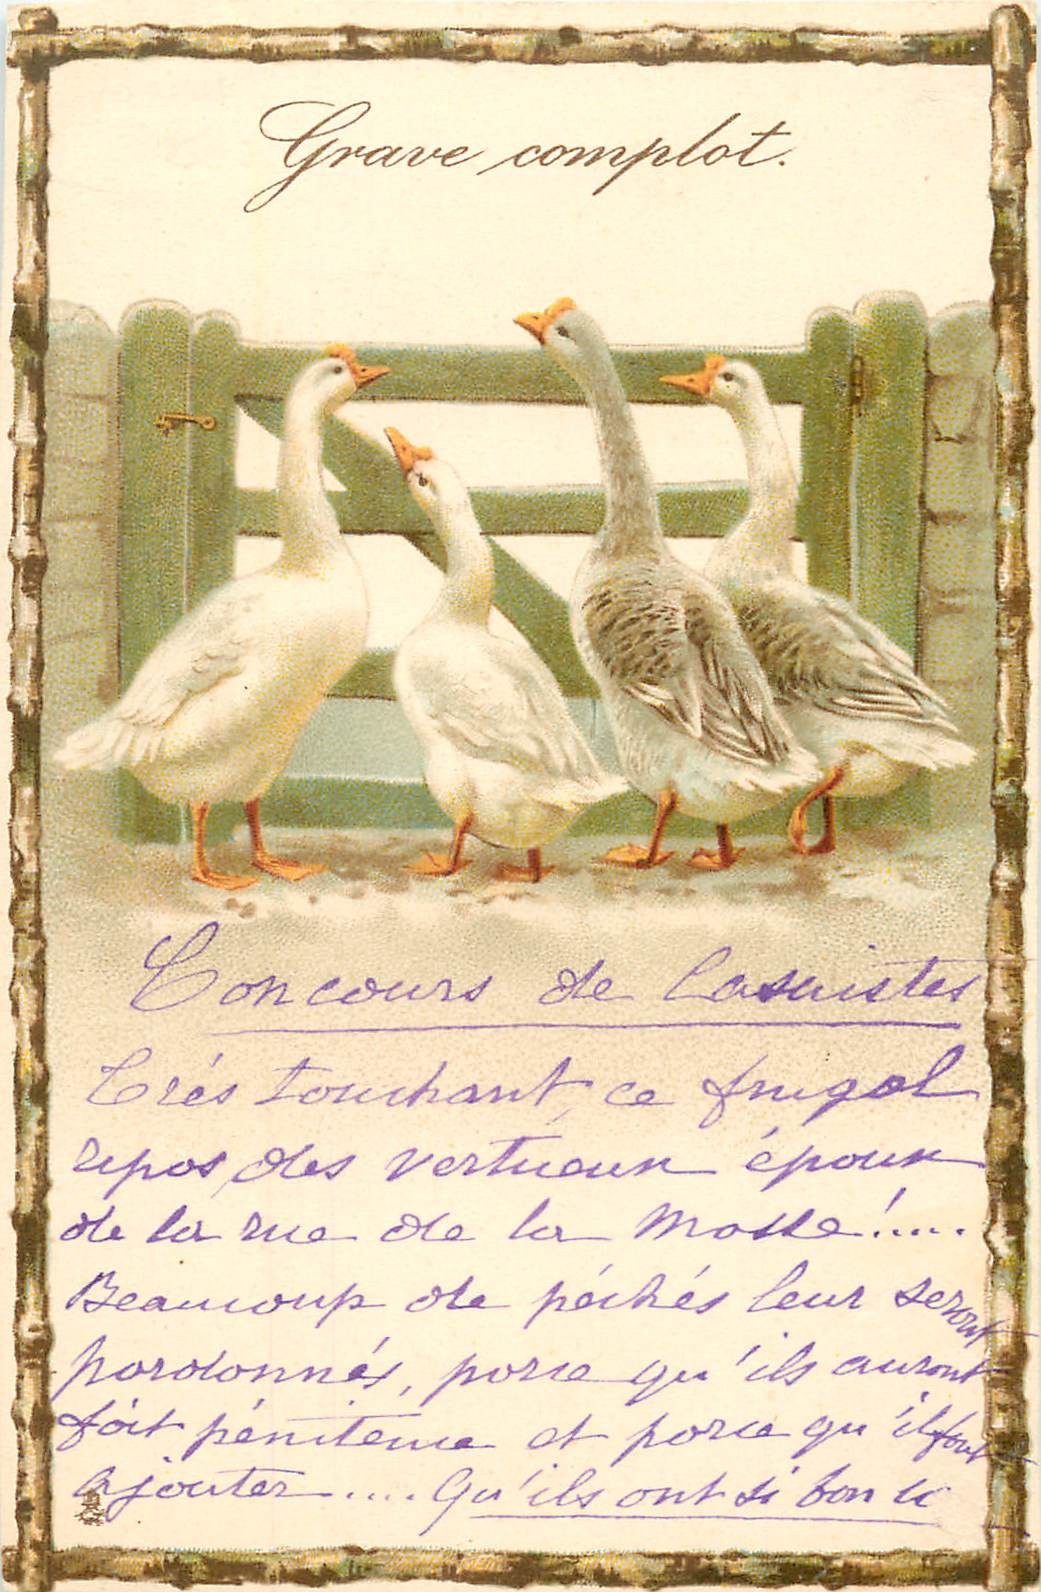 Grave complot.
Concours de Casuistes
Très touchant, ce frugal
repos des vertueux époux
de la rue de la Motte!....
Beaucoup de péchés leur seront
pardonnés, parce qu'ils auront
fait pénitence et parce qu'il faut
ajouter.... Qu'ils ont si bon